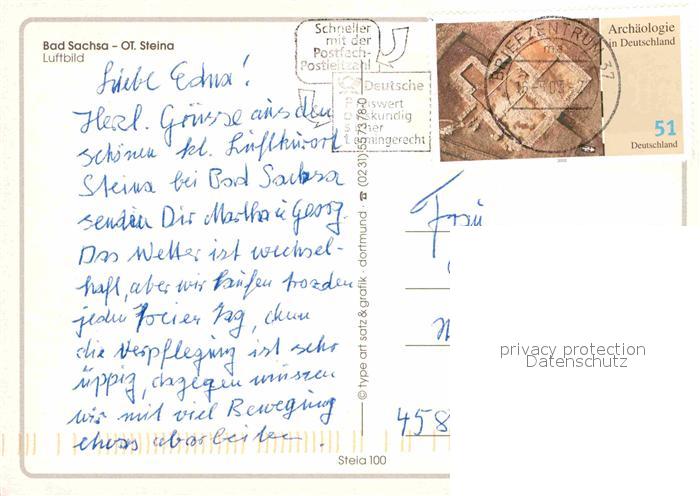 Bad Sachsa – OT. Steina
Luftbild
Liebe Edna!
Herzl. Grüsse aus den
schönen kl. Luftkurort
Steina bei Bad Sachsa
senden Dir Martha u Georg.
Das Wetter ist wechsel-
haft, aber wir laufen trozdem
jeden freien Tag, denn
die Verpflegung ist sehr
üppig, dagegen müssen
wir mit viel Bewegung
etwas abarbeiten.
Schneller
mit der
Postfach-
Postleitzahl
Deutsche
iswert
kundig
termingerecht
BRIEFZENTRUM 37
Archäologie
in Deutschland
51
Deutschland
© type art satz & grafik · dortmund · ☎ (0231) 557378-0
Frau
458
privacy protection
Datenschutz
Steia 100